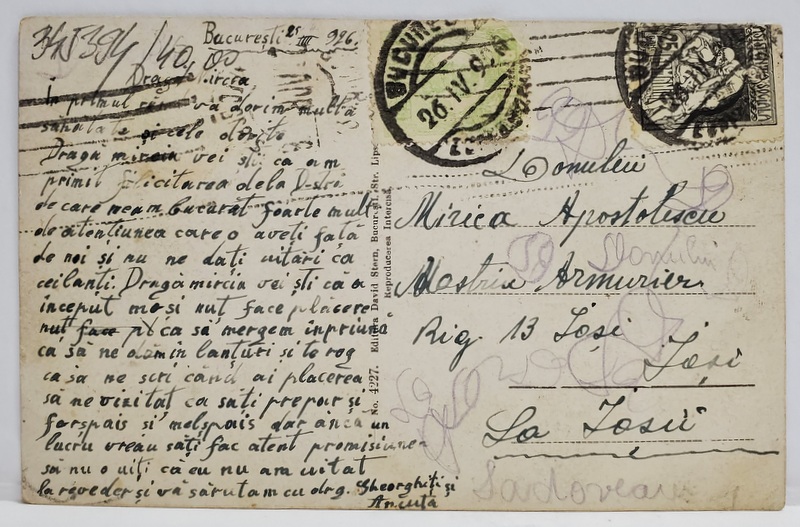 345394/40,00
București 25 III 926.
Dragă mircea
În primul rând vă dorim multă
sănătate și cele dorite
Dragă mircia vei sti ca am
primit felicitarea dela D-stră
de care neam bucurat foarte mult
de atențiunea care o aveți față
de noi și nu ne dați uitări ca
ceilanți. Dragă mircia vei ști că a
început mosi nuț face plăcere
nuț face pl ca să mergem inpriuna
ca să ne dăm in lanțuri și te rog
ca sa ne scri când ai placerea
sa ne vizitat ca sati prepar și
forșpais si melspais dar ancă un
lucru vreau săți fac atent promisiunea
să nu o uiți ca eu nu am uitat
la revedere și vă sărutam cu drg. Gheorghiți și
Ancuța
No. 4227. Editura David Stern, București, Str. Lips
Reproducerea Interzisă
BUCUREȘTI
26.IV.926
Domnului
Mirica Apostolescu
Mastru Armurier
Rig 13 Iași
Iași
La Iasii
Domnului
Sadoveanu